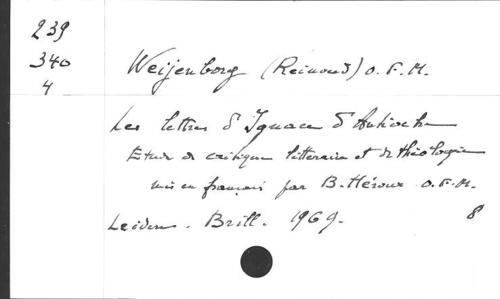 239
340
4
Weijenborg (Reinoud) O.F.M.
Les lettres d'Ignace d'Antioche
Etude de critique littéraire et de théologie
mis en français par B. Héroux O.F.M.
Leiden. Brill. 1969. 8